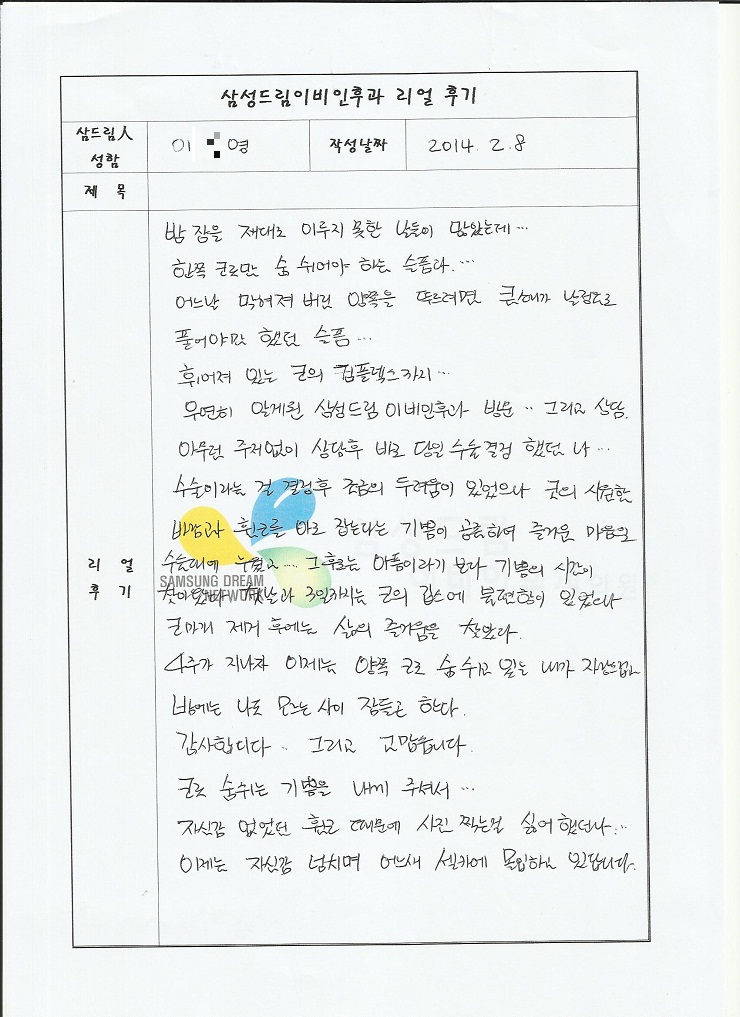 삼성드림이비인후과 리얼 후기
삼드림人 성함
이 영
작성날짜
2014. 2. 8
제 목
밤 잠을 제대로 이루지 못한 날들이 많았는데…
한쪽 코로만 숨 쉬어야 하는 슬픔과…
어느날 막혀져 버린 양쪽을 뚫으려면 큰 날정도로
풀어야만 했던 슬픔…
휘어져 있는 코의 컴플렉스까지…
우연히 알게된 삼성드림이비인후과 방문.. 그리고 상담.
아무런 주저없이 상담후 바로 당일 수술결정 했던 나…
수술이라는 걸 결정후 조금의 두려움이 있었으나 콧의 시원한
바람과 휜코를 바로 잡는다는 기쁨이 공존하여 즐거운 마음으로
리 얼
후 기
수술대에 누웠고.... 그후로는 아픔이라기 보다 기쁨의 시간이
SAMSUNG DREAM
NETWORK
찾아왔다 첫날과 3일까지는 코의 에 불편함이 있었으나
코마개 제거 후에는 삶의 즐거움을 찾았다.
4주가 지나자 이제는 양쪽 코로 숨 쉬고 있는 내가 자랑스럽고
밤에는 나도 모르는 사이 잠들곤 한다.
감사합니다.. 그리고 고맙습니다.
코로 숨쉬는 기쁨을 내게 주셔서…
자신감 없었던 휜코 때문에 사진 찍는걸 싫어했던나…
이제는 자신감 넘치며 어느새 셀카에 몰입하고 있답니다.